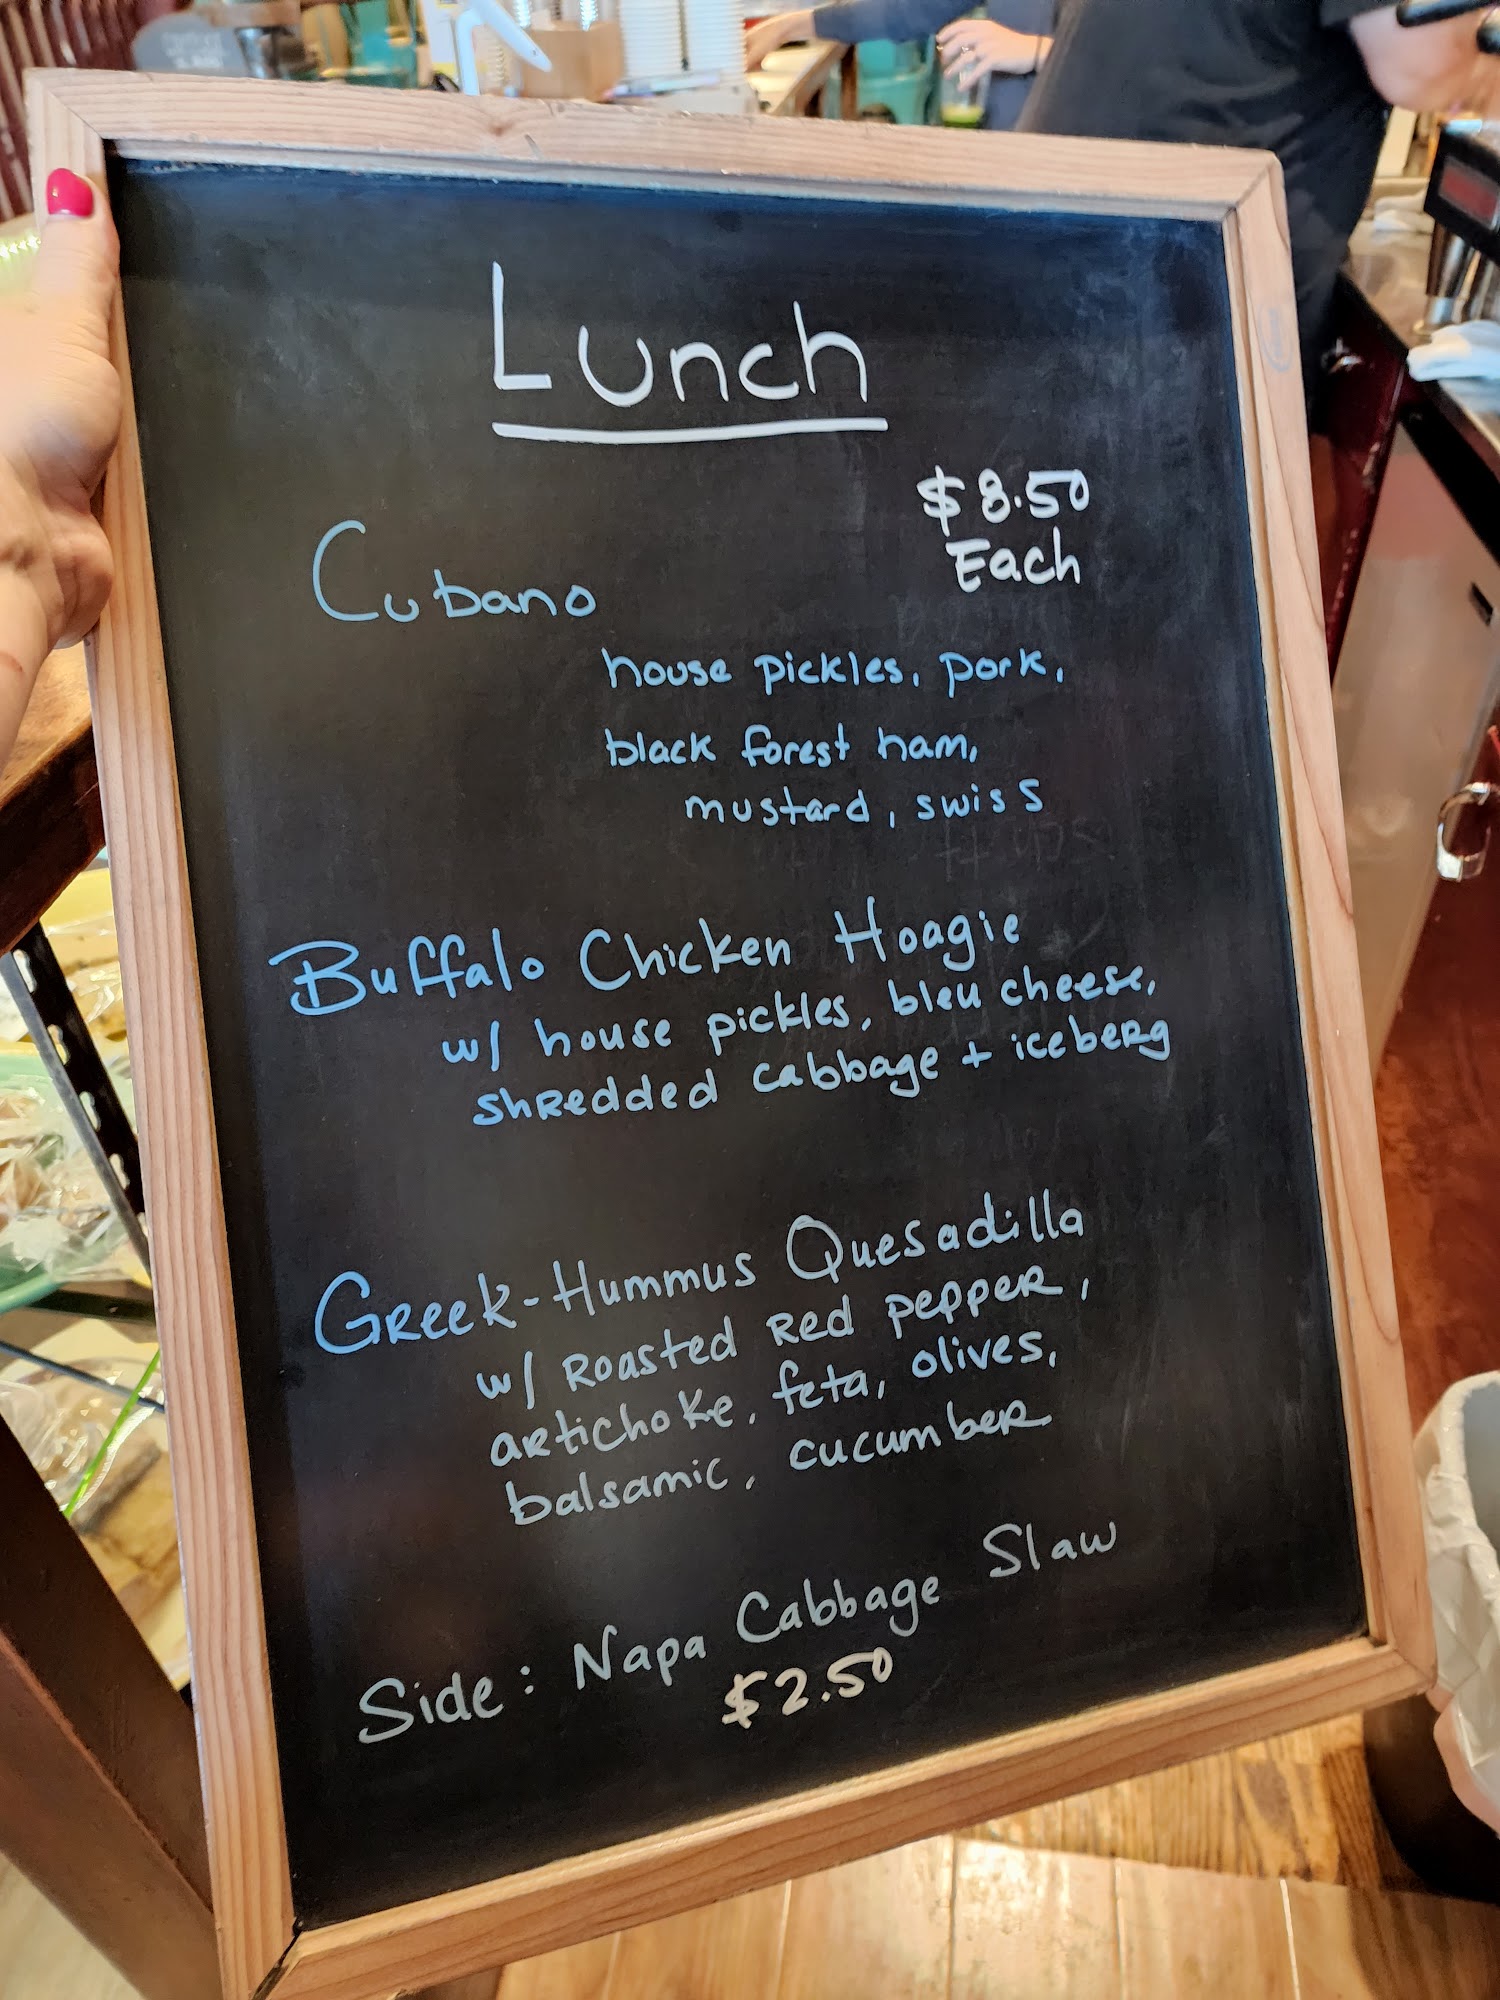 Lunch
$8.50
Each
Cubano
house pickles, pork,
black forest ham,
mustard, swiss
Buffalo Chicken Hoagie
w/ house pickles, bleu cheese,
shredded cabbage + iceberg
Greek-Hummus Quesadilla
w/ roasted red pepper,
artichoke, feta, olives,
balsamic, cucumber
Side: Napa Cabbage Slaw
$2.50